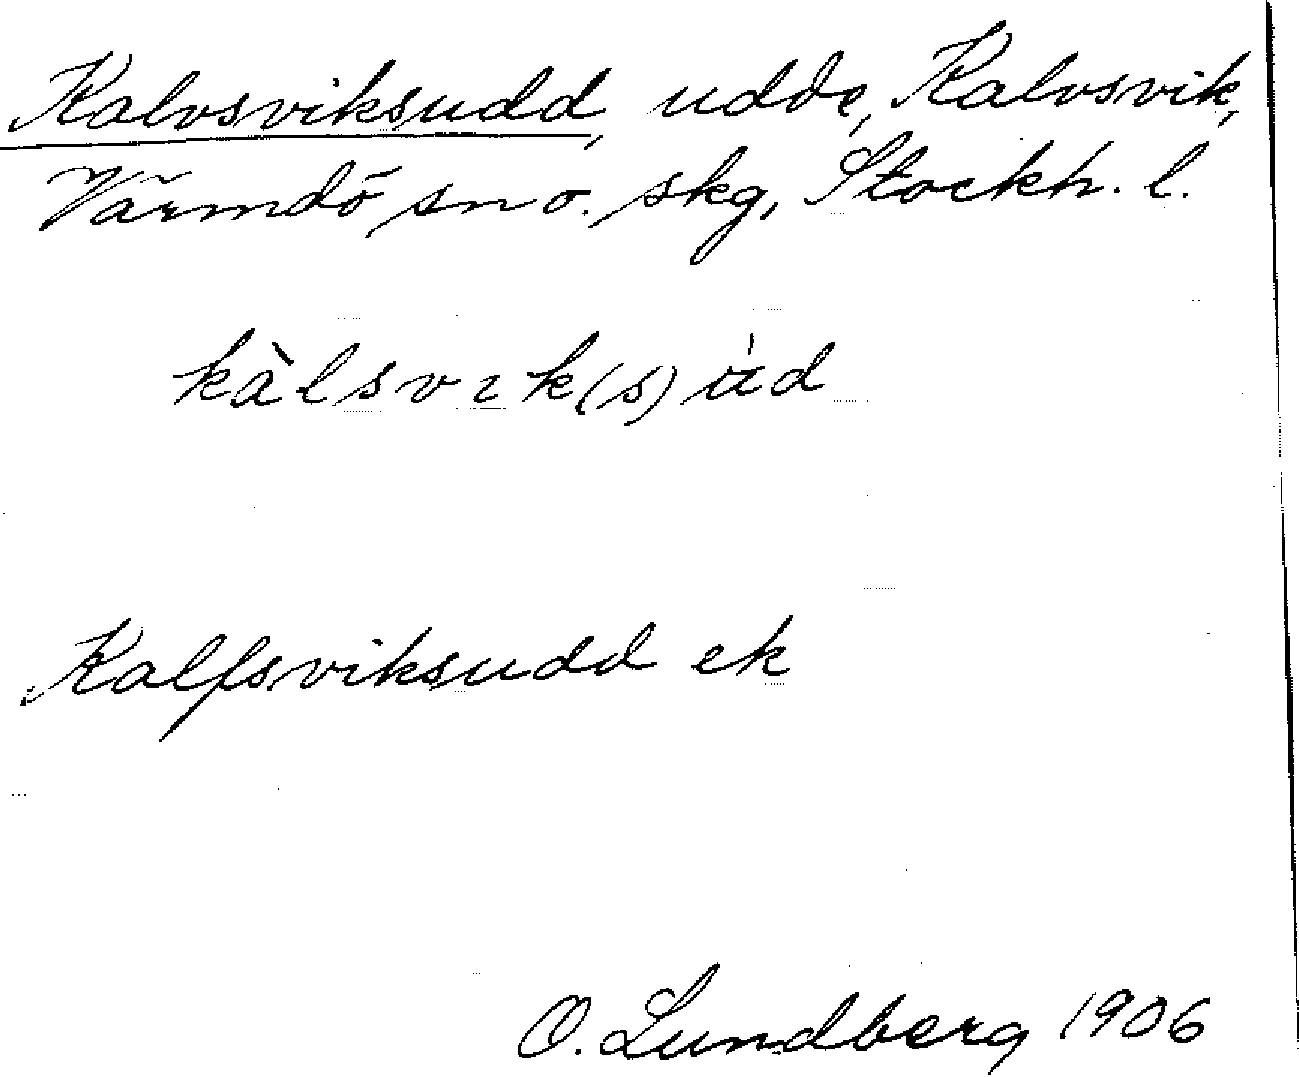 Kalvsviksudd, udde, Kalvsvik,
Värmdö sn o. skg, Stockh. l.
kàlsvɪk(s)ùd
Kalfsviksudd ek
O. Lundberg 1906